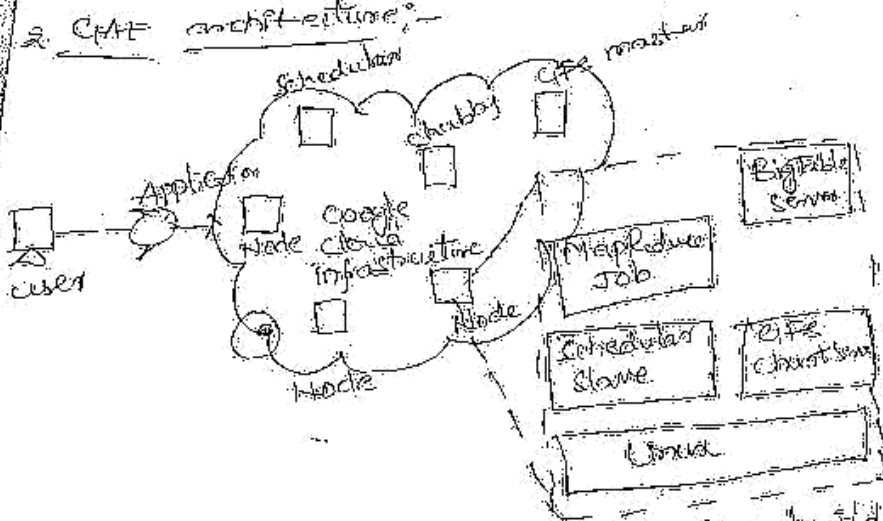 2. GAE architecture:-
Schedular
GFS master
Chubby
Application
User
Node
Google
Cloud
Infrastructure
Node
Node
BigTable
Server
MapReduce
Job
Schedular
Slave
GFS
Linux